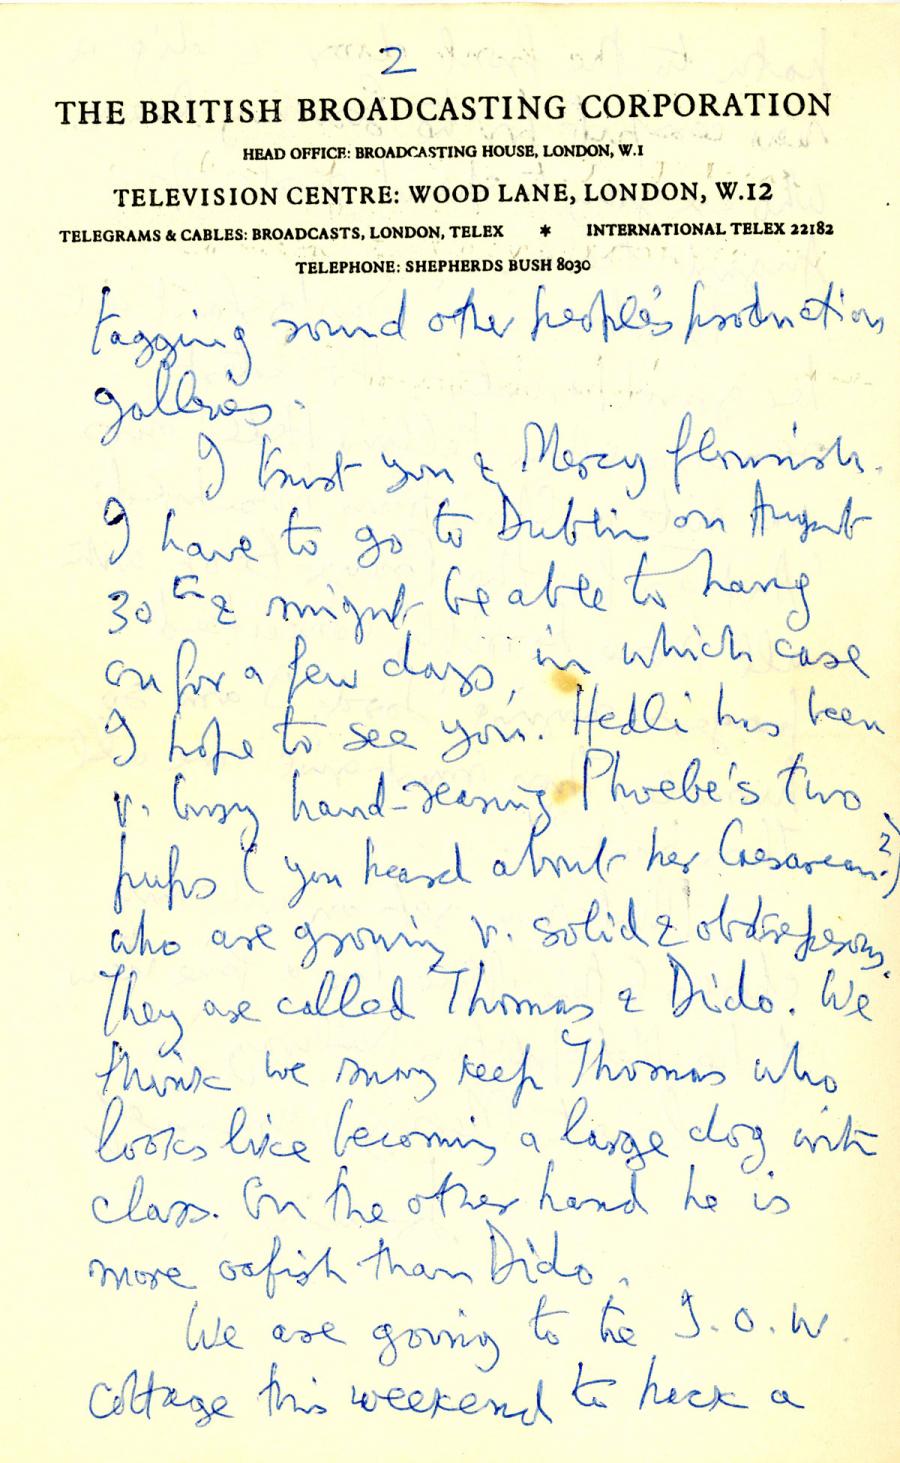 2
THE BRITISH BROADCASTING CORPORATION
HEAD OFFICE: BROADCASTING HOUSE, LONDON, W.1
TELEVISION CENTRE: WOOD LANE, LONDON, W.12
TELEGRAMS & CABLES: BROADCASTS, LONDON, TELEX * INTERNATIONAL TELEX 22182
TELEPHONE: SHEPHERDS BUSH 8030
tagging round other people's production
galleries.
I trust you & Mercy flourish.
I have to go to Dublin on August
30th & might be able to hang
on for a few days, in which case
I hope to see you. Hedli has been
v. busy hand-rearing Phoebe's two
pups (you heard about her Caesarean?)
who are growing v. solid & obstreperous.
They are called Thomas & Dido. We
think we may keep Thomas who
looks like becoming a large dog with
class. On the other hand he is
more oafish than Dido.
We are going to the I.O.W.
cottage this weekend to hack a